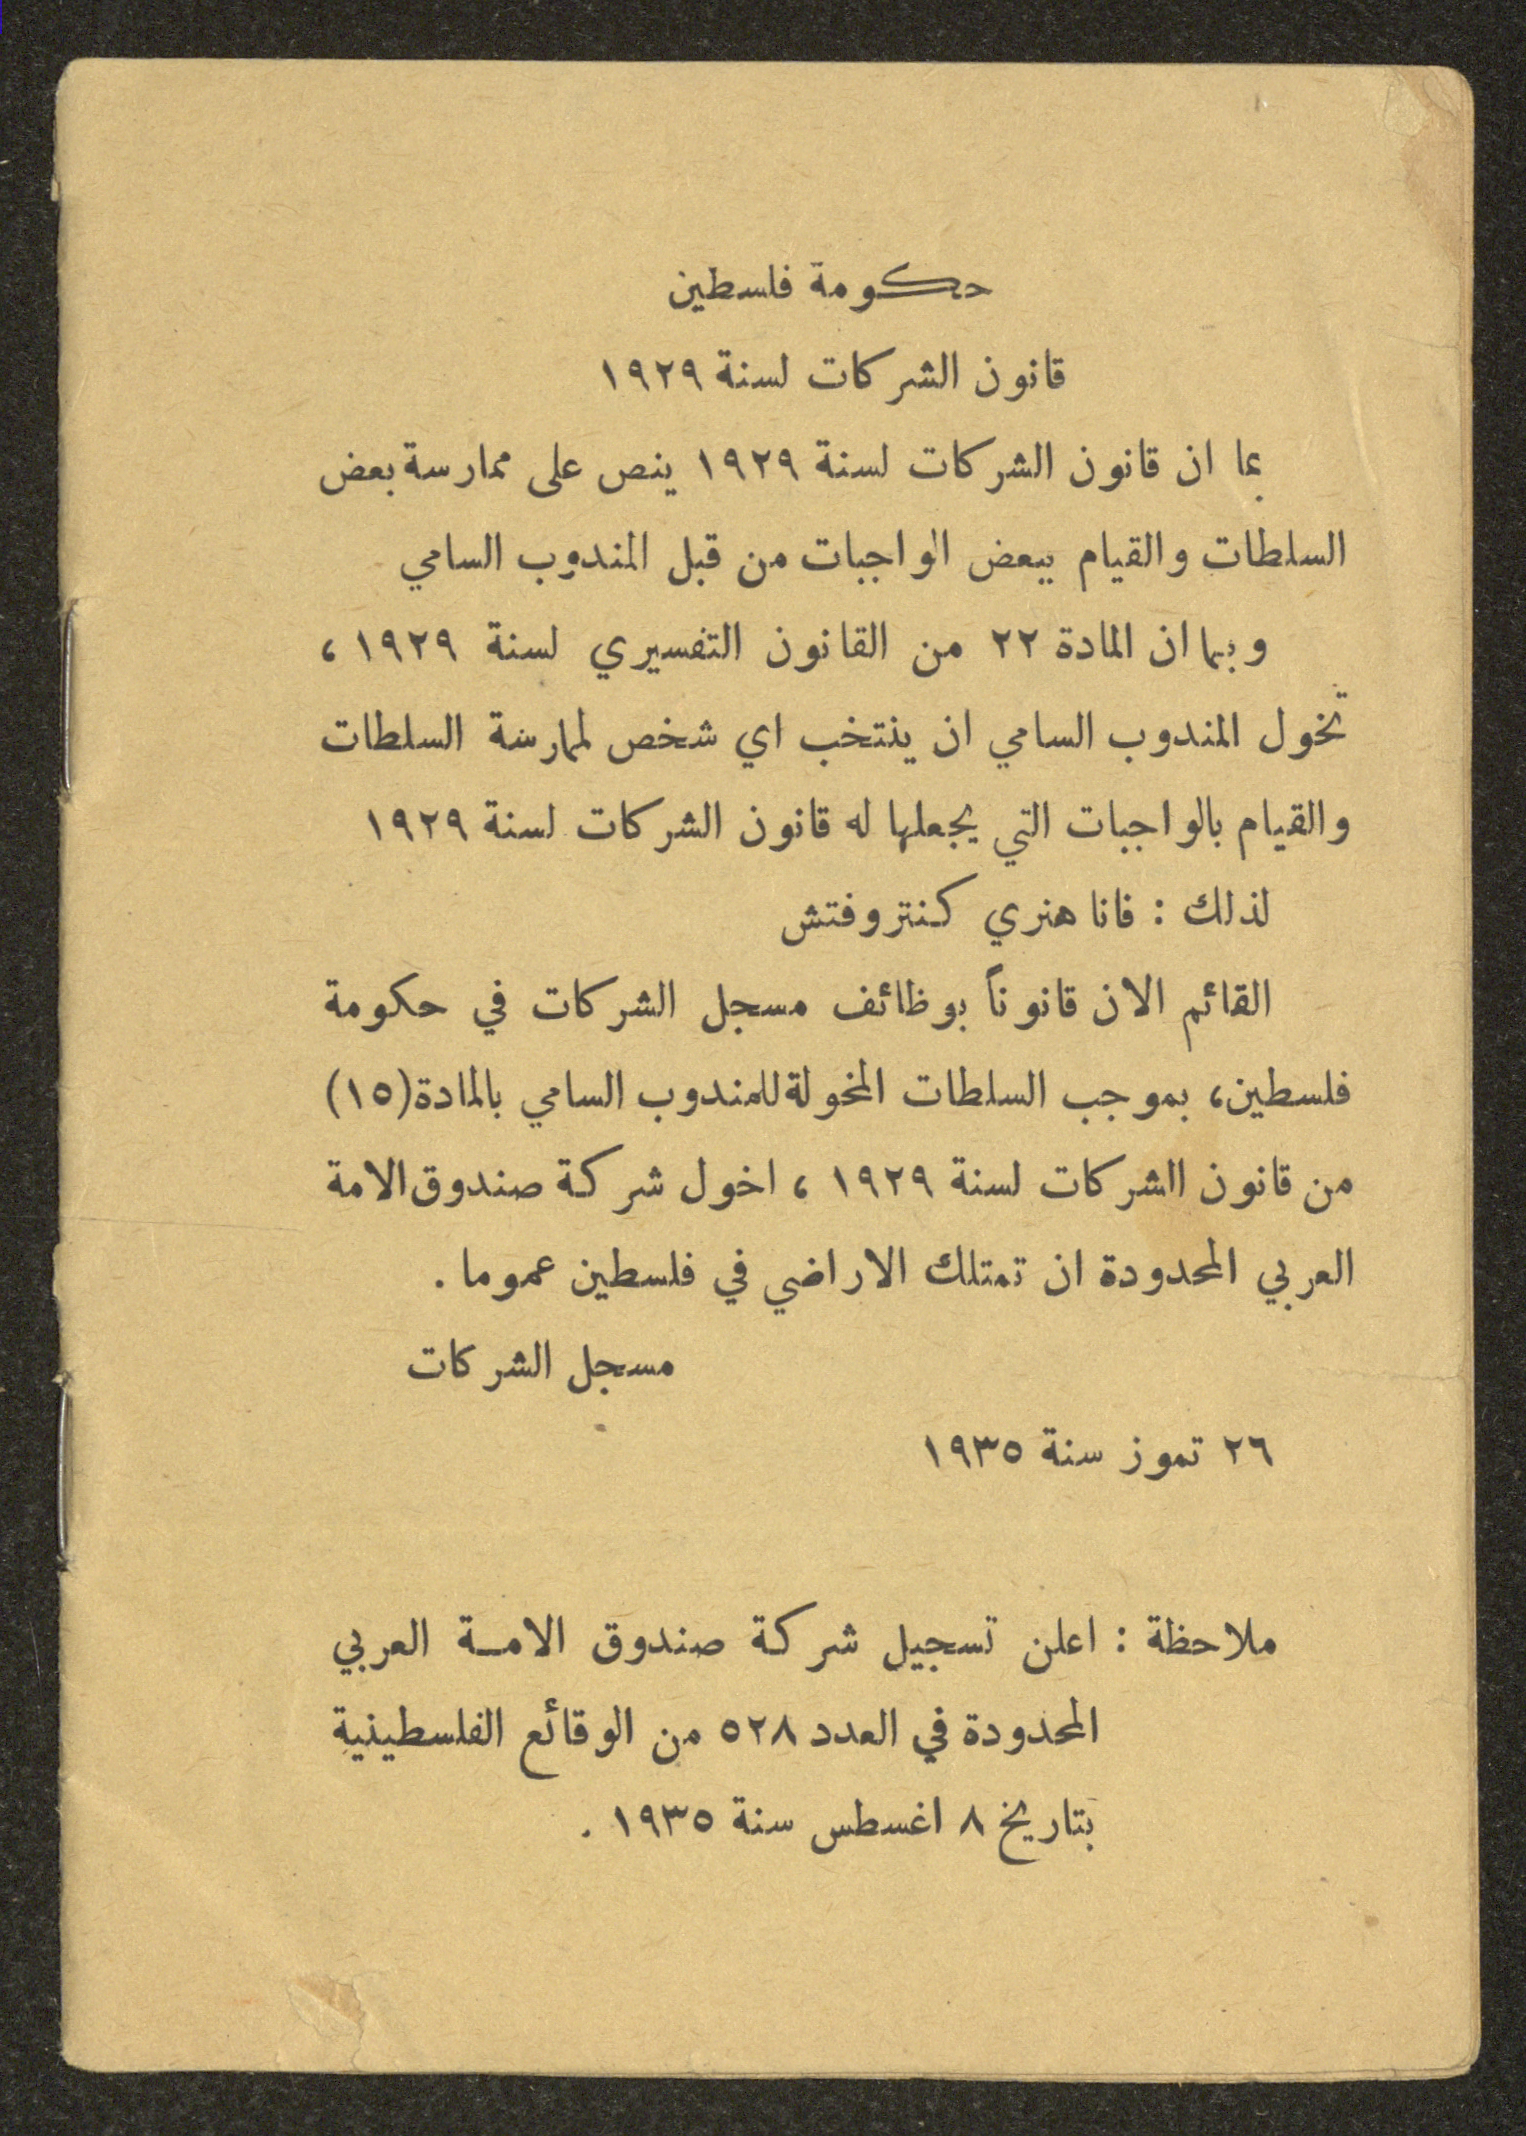 حكومة فلسطين
قانون الشركات لسنة ١٩٢٩
بما ان قانون الشركات لسنة ١٩٢٩ ينص على ممارسة بعض
السلطات والقيام ببعض الواجبات من قبل المندوب السامي
وبما ان المادة ٢٢ من القانون التفسيري لسنة ١٩٢٩ ،
تخول المندوب السامي ان ينتخب اي شخص لممارسة السلطات
والقيام بالواجبات التي يجعلها له قانون الشركات لسنة ١٩٢٩
لذلك : فانا هنري كنتروفتش
القائم الان قانوناً بوظائف مسجل الشركات في حكومة
فلسطين، بموجب السلطات المخولة للمندوب السامي بالمادة (١٥)
من قانون الشركات لسنة ١٩٢٩ ، اخول شركة صندوق الامة
العربي المحدودة ان تمتلك الاراضي في فلسطين عموما .
مسجل الشركات
٢٦ تموز سنة ١٩٣٥
ملاحظة : اعلن تسجيل شركة صندوق الامـة العربي
المحدودة في العدد ٥٢٨ من الوقائع الفلسطينية
بتاريخ ٨ اغسطس سنة ١٩٣٥ .